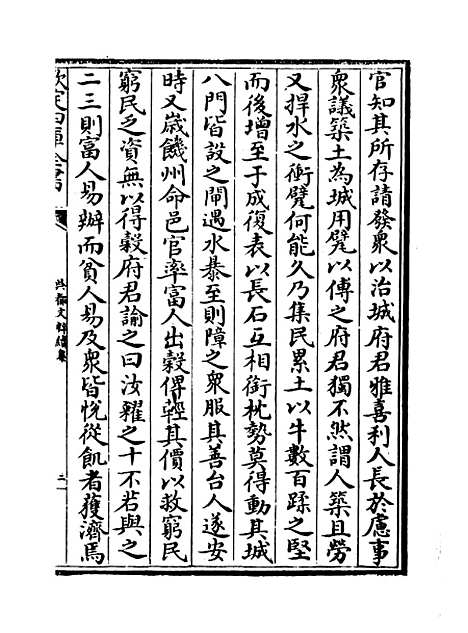 官知其所存請發衆以治城府君雅喜利人長於慮事
衆議築土為城用甓以傅之府君獨不然謂人築且勞
又捍水之衝甓何能久乃集民累土以牛數百蹂之堅
而後增至于成復表以長石互相銜枕勢莫得動其城
八門皆設之閘遇水暴至則障之衆服其善台人遂安
時又歲饑州命邑官率富人出穀俾輕其價以救窮民
窮民乏資無以得穀府君諭之曰汝糶之十不若與之
二三則富人易辦而貧人易及衆皆悅從飢者獲濟焉
欽定四庫全書